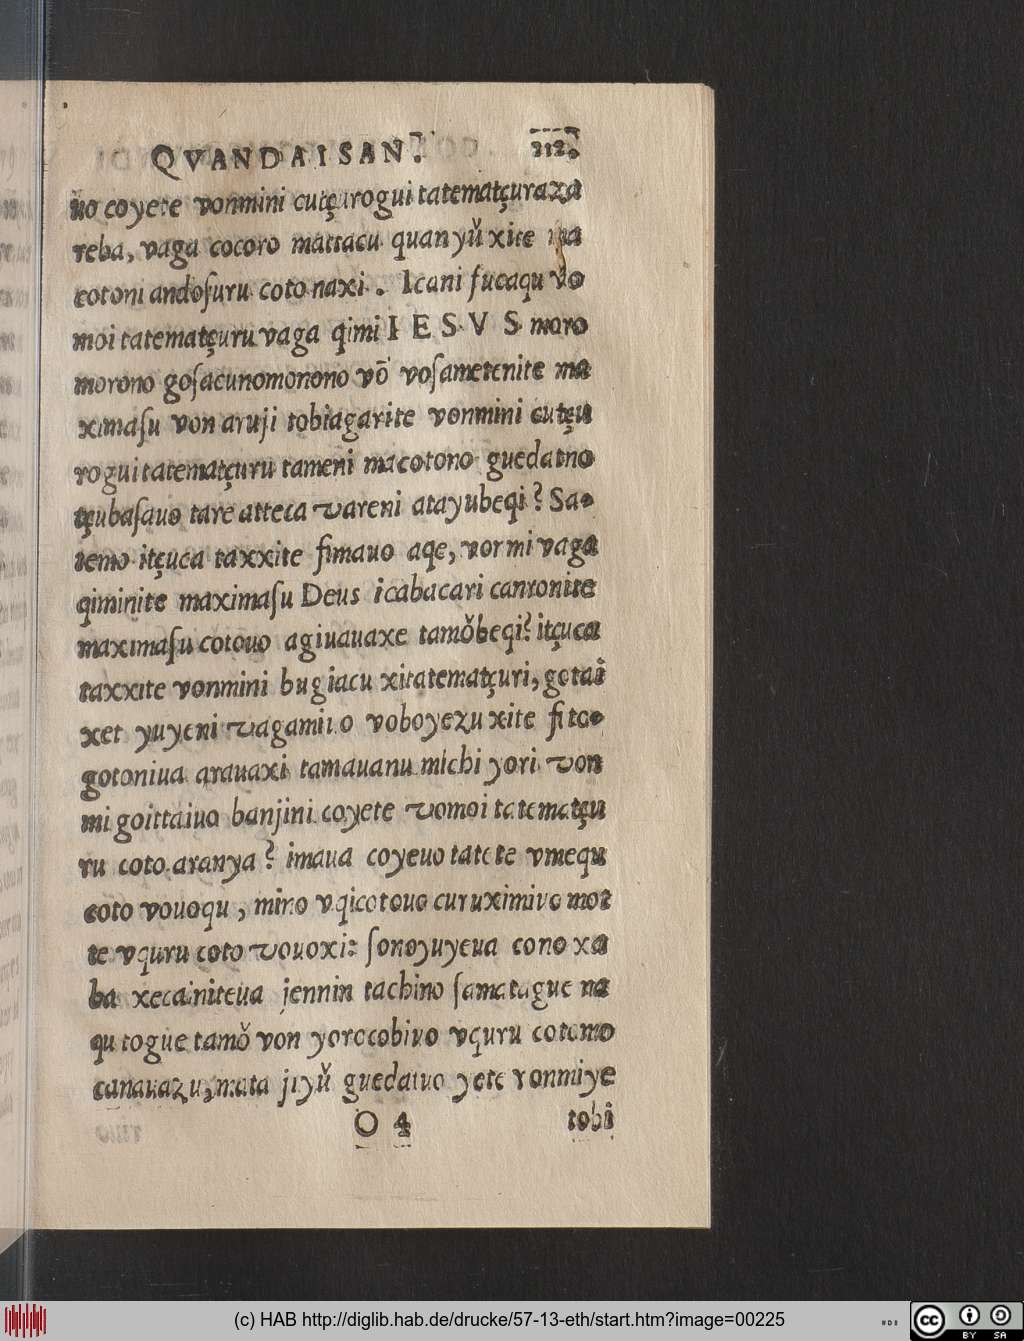 QVANDAI SAN. 212.
uo coyete vonmini cutçurogui tatematçuraza
reba, vaga cocoro mattacu quanyǔ xite na
cotoni andoſuru coto naxi. Icani fucaqu vo
moi tatematçuru vaga qimi IESVS moro
morono goſacunomonono vō voſametenite ma
ximaſu von aruji tobiagarite vonmini cutçu
rogui tatematçuru tameni macotono guedatno
tçubaſauo tare atteca vareni atayubeqi? Sa-
temo itçuca taxxite fimauo aqe, vonmi vaga
qiminite maximaſu Deus icabacari canronite
maximaſu cotouo agiuauaxe tamǒbeqi? itçuca
taxxite vonmini bugiacu xitatematçuri, gotai
xet yuyeni vagamiuo voboyezu xite fito-
gotoniua arauaxi tamauanu michi yori von
mi goittaiuo banjini coyete vomoi tatematçu
ru coto aranya? imaua coyeuo tatete vmequ
coto vouoqu, mino vqicotouo curuximiuo mot
te vquru coto vouoxi: ſonoyuyeua cono xa
ba xecainiteua jennin tachino ſamatague na
qu togue tamǒ von yorocobiuo vquru cotomo
canauazu, mata jiyǔ guedatuo yete vonmiye
O 4 tobi
(c) HAB http://diglib.hab.de/drucke/57-13-eth/start.htm?image=00225
cc BY SA